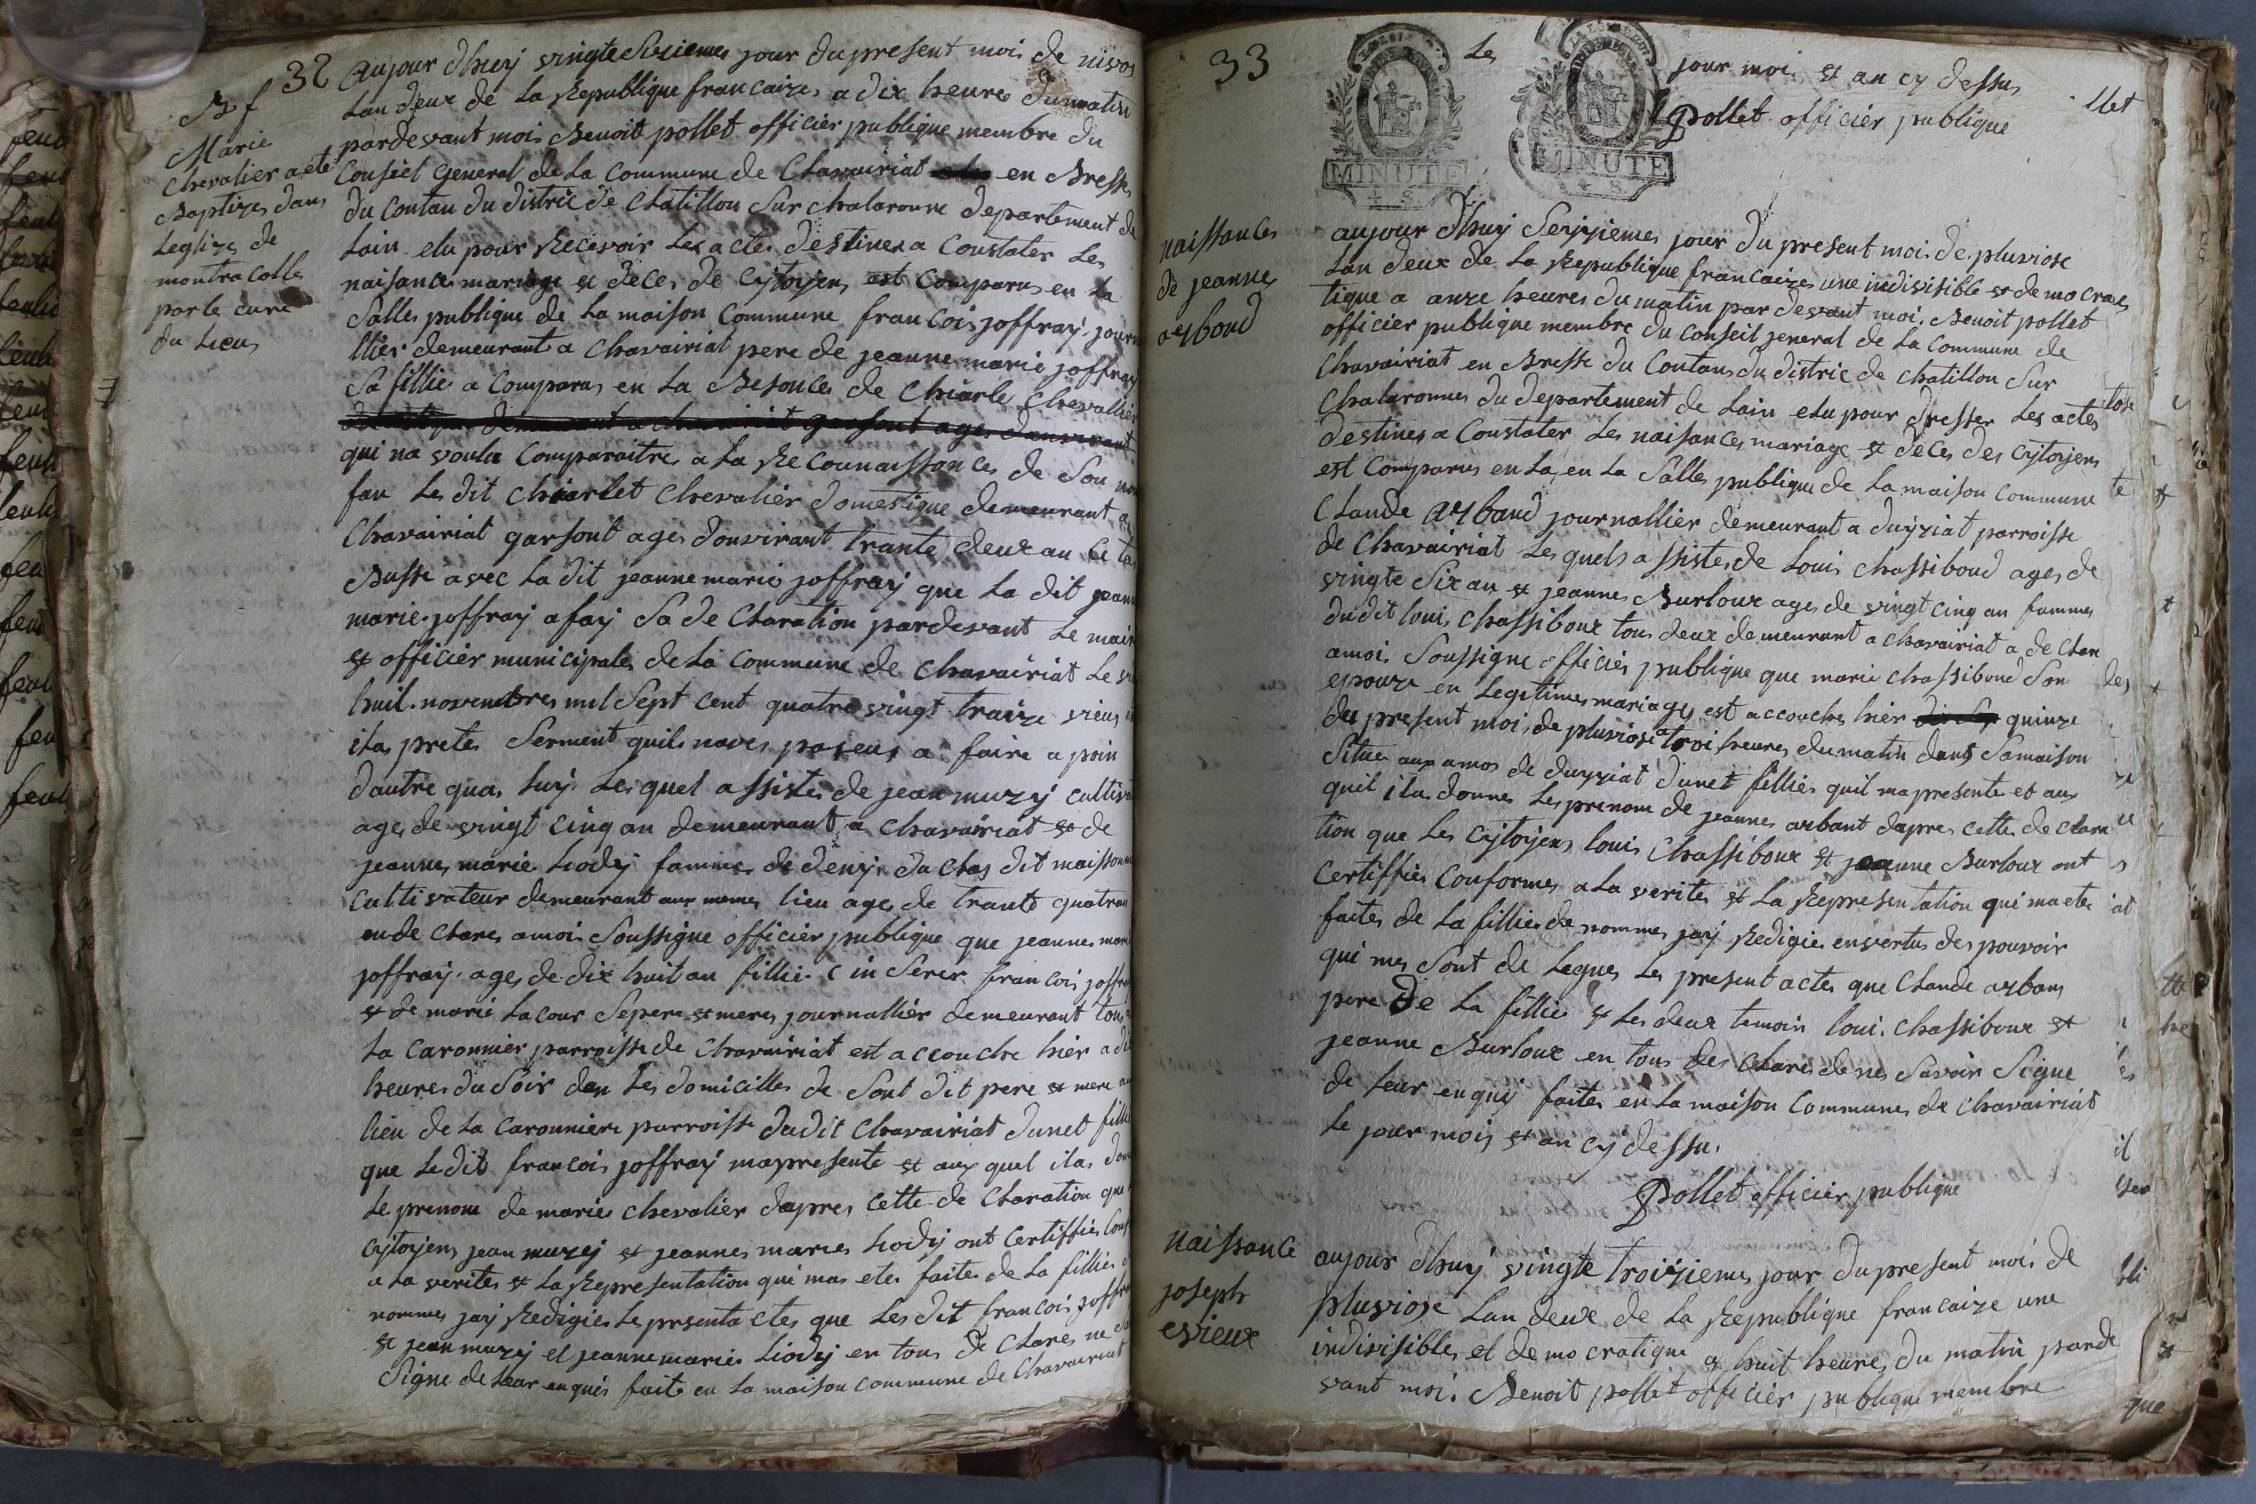 32
B f
Marie
Chevalier a ete
Baptizes dans
Leglize de
montracolle
par le cure
du Lieu
aujour dhuy vingte sizieme jour du present moi de nivos
Lan deux de La Republique francaize a dix heure du matin
pardevant moi Benoit pollet officier publique membre du
Conseil General de La Commune de Chavairiat en Bresse
du Contau du distric de Chatillon Sur chalaronne departement de
Lain elu pour Recevoir Les acte destinex a Constater Les
naisance mariage et deces de Cytoyens est Comparus en La
Salles publique de La maison Commune francois joffray journ
llier demeurant a Chavairiat pere de jeanne marie joffray
Sa fillie a Comparus en La Besonces de Chiarle Chevallier
qui na voulu Comparaitre a La Reconnaissonces de Son
fan Les dit Chiarlet Chevalier domestique demeurant a
Chavairiat garsont ages donvirant trante deux an Ce
Busse avec La dit jeanne marie joffray que La dit jeann
marie joffray a fay Sa de Claration pardevant Le mair
et officier municipales de La Commune de Chavairiat Le
huit novembres mil Sept Cent quatre vingt traize vieux
ilas pretes Serment quils naves paseus a faire a poin
dautre qua luy Les quel assistes de jean muzy cultiva
ages de vingt Cinq an demeurant a Chavairiat et de
jeannes marie Liody famme de denys du Clos dit maissonn
Cultivateur demeurant aux memes lieu ages de trante quatre
an de Clares a moi Soussigne officier publique que jeannes mari
joffray ages de dix huit an fillie Cin Serer francois joffra
et de marie Lacour Sepere et meres journallier demeurant tous
La Caronnier parroisse de Chavairiat est accouche hier a di
heures du Soir dan Les domicilles de Sont dit pere et mere au
lieu de La Caronniere parroisse dudit Chavairiat dunet filli
que Ledit francois joffray mapresente et aux quel ilas don
Le prenom de maries chevalier dapres cette de Claration que
Cytoyens jean muzey et jeannes maries Liody ont Certiffies Conf
a La verites et La Representation qui mas etes faites de La fillies
nommes jay Redigies Le present actes que Les dit francois joffr
et jean muzy et jeanne maries Liody en tous de Clares ne
Signe de Leur enquis faite en La maison Commune de Chavairiat
33
Le jour moi et an cy dessus
Pollet officier publique
MINUTE
4. S.
MINUTE
4. S.
naissances
de jeannes
arboud
aujour dhuy Seizziemes jour du present moi de pluviose
Lan deux de La Republique francaizes une indivisible et de mo crac
tique a anze heures du matin par devant moi Benoit pollet
officier publique membre du Conseil jeneral de La Commune de
Chavairiat en Bresse du Contau du distric de Chatillon Sur
Chalaronnes du departement de Lain elu pour dresser Les actes
destines a Constater Les naisances mariage et deces des Cytoyens
est Comparus en La en La Salles publique de La maison Commune
Claude arbaud journallier demeurant a duyziat parroisse
de Chavairiat Les quels assistes de Louis Chassiboud ages de
vingte Six an et jeannes Burloux ages de vingt Cinq an fammes
dudit louis Chassiboux tous deux demeurant a Chavairiat a de Clar
amoi Soussigne officier publique que marie Chassiboud Son
epouze en Legitimes mariages est accouches hier quinze
du present moi de pluviose a troi heures du matin dans Samaison
Situe aux amos de duyziat dunet fillies quil mapresente et aux
queil ila donnes Les prenom de jeannes arbant dapres cette de Clara
tion que Les Cytoyens louis Chassiboux et jeanne Burloux ont
Certiffies Conformes a La verites et La Representation qui ma ete
faites de La fillies de nommes jay Redigies en vertus des pouvoir
qui mes Sont de Legues Les present actes que Claude arbans
pere de La fillies et Les deux temoin loui Chassiboux et
jeanne Burloux en tous des Claré de nes Savoir Signe
de Leur enquij faites en La maison Communes de Chavairiat
Le jour mois et an cy dessus
Pollet officier publique
naissance
joseph
evieux
aujour dhuy vingte troizieme jour du present moi de
pluviose Lan deux de La Republique francaize une
indivisibles et de mo cratique a huit heures du matin parde
vant moi Benoit pollet officier publique membre